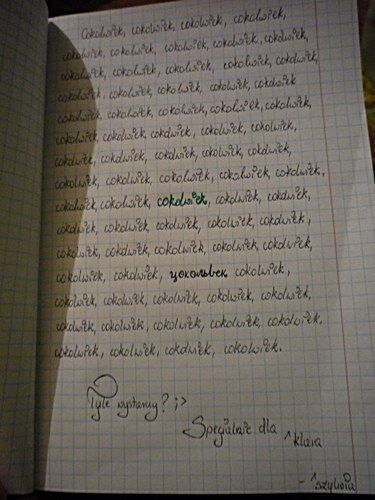 Cokolwiek, cokolwiek, cokolwiek, cokolwiek,
cokolwiek, cokolwiek, cokolwiek, cokolwiek, cokolwiek,
cokolwiek, cokolwiek, cokolwiek, cokolwiek, cokolwiek,
cokolwiek, cokolwiek, cokolwiek, cokolwiek, cokolwiek
cokolwiek, cokolwiek, cokolwiek, cokolwiek, cokolwiek,
cokolwiek, cokolwiek, cokolwiek, cokolwiek, cokolwiek,
cokolwiek, cokolwiek, cokolwiek, cokolwiek, cokolwiek,
cokolwiek, cokolwiek, cokolwiek, cokolwiek, cokolwiek,
cokolwiek, cokolwiek, cokolwiek, cokolwiek, cokolwiek,
cokolwiek, cokolwiek, cokolwiek, cokolwiek, cokolwiek,
cokolwiek, cokolwiek, cokolwiek, cokolwiek, cokolwiek,
cokolwiek, cokolwiek, цокольвек, cokolwiek,
cokolwiek, cokolwiek, cokolwiek, cokolwiek, cokolwiek,
cokolwiek, cokolwiek, cokolwiek, cokolwiek, cokolwiek,
cokolwiek, cokolwiek, cokolwiek, cokolwiek.
Tyle wystarczy? ;>
Specjalnie dla ^klara
- ^szylwia